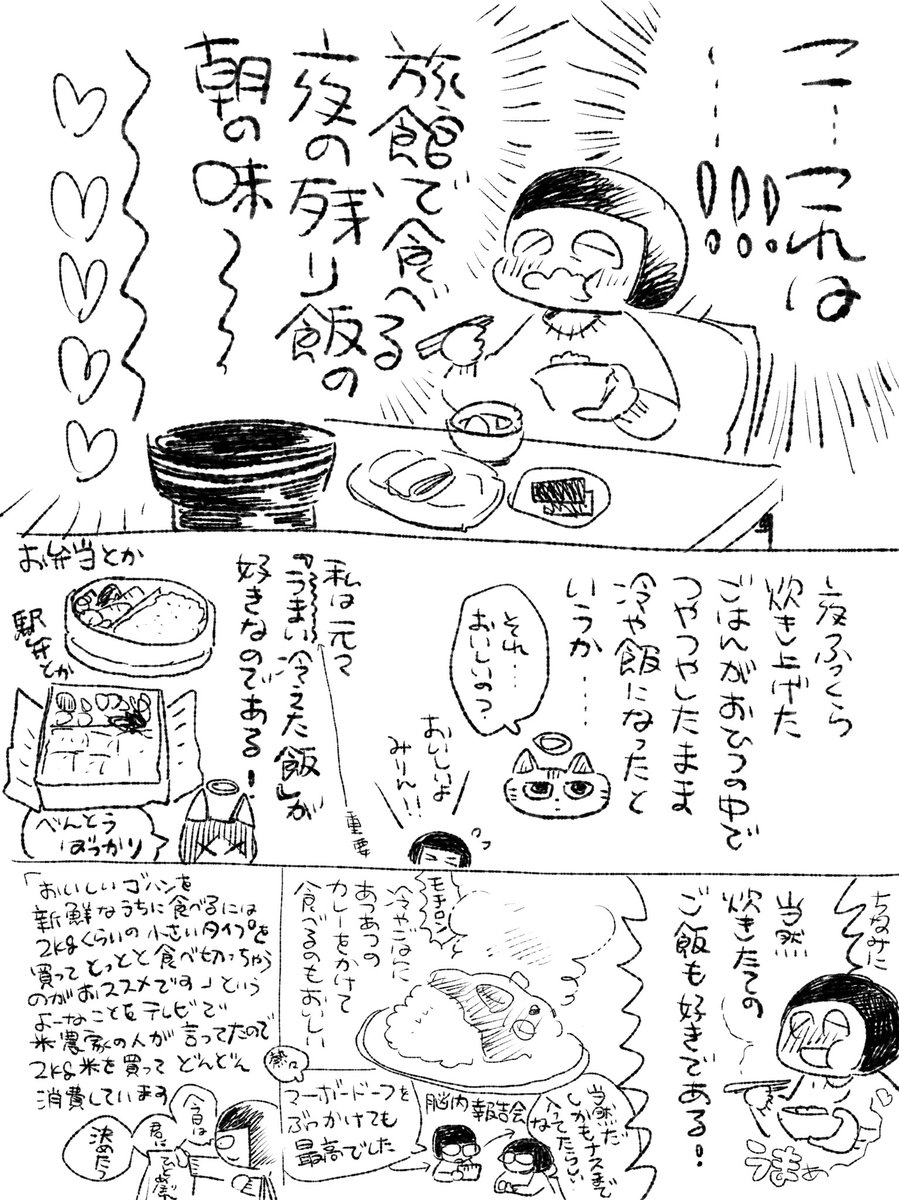 こ…これは
……!!!
旅館で食べる
夜の残り飯の
朝の味〜〜
夜ふっくら
炊き上げた
ごはんがおひつの中で
つやつやしたまま
冷や飯になったと
いうか……
それ…
おいしいの?
おいしいよ
みりん!!
私は元々
『うまい冷えた飯』が
好きなのである!
重要
お弁当とか
駅弁とか
べんとう
ばっかり
ちなみに
当然
炊きたての
ご飯も好きである!
うまぁ
モチロン
あつあつの
冷やごはんに
カレーをかけて
食べるのもおいしい
当然だ
しかもナスまで
入ってたらしい
な
脳内報告会
マーボードーフを
ぶっかけても
最高でした
「おいしいゴハンを
新鮮なうちに食べるには
2kgくらいの小さいタイプを
買ってとっとと食べ切っちゃう
のがおススメです」という
よーなことをテレビで
米農家の人が言ってたので
2kg米を買ってどんどん
消費しています
今日は
君に
決めたっ